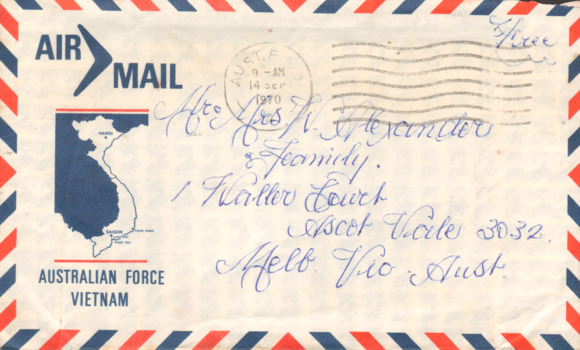 AIR
MAIL
AUST. F.P.O.
9-AM
14 SEP
1970
Free
HANOI
SAIGON
AUSTRALIAN FORCE
VIETNAM
Mr. Mrs W. Alexander
& Family.
1 Waller Court
Ascot Vale 3032.
Melb. Vic. Aust.